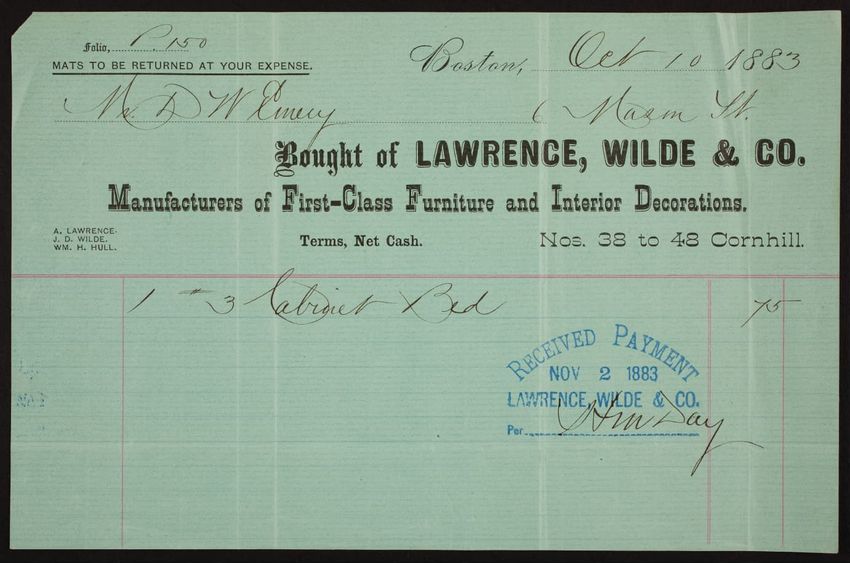 Folio, P. 150
MATS TO BE RETURNED AT YOUR EXPENSE.
Boston, Oct 10 1883
Mr. D W Emery 6 Mason St.
Bought of LAWRENCE, WILDE & CO.
Manufacturers of First-Class Furniture and Interior Decorations.
A. LAWRENCE.
J. D. WILDE.
WM. H. HULL.
Terms, Net Cash.
Nos. 38 to 48 Cornhill.
1 #3 Cabinet Bed 75
RECEIVED PAYMENT
NOV 2 1883
LAWRENCE, WILDE & CO.
Per Day